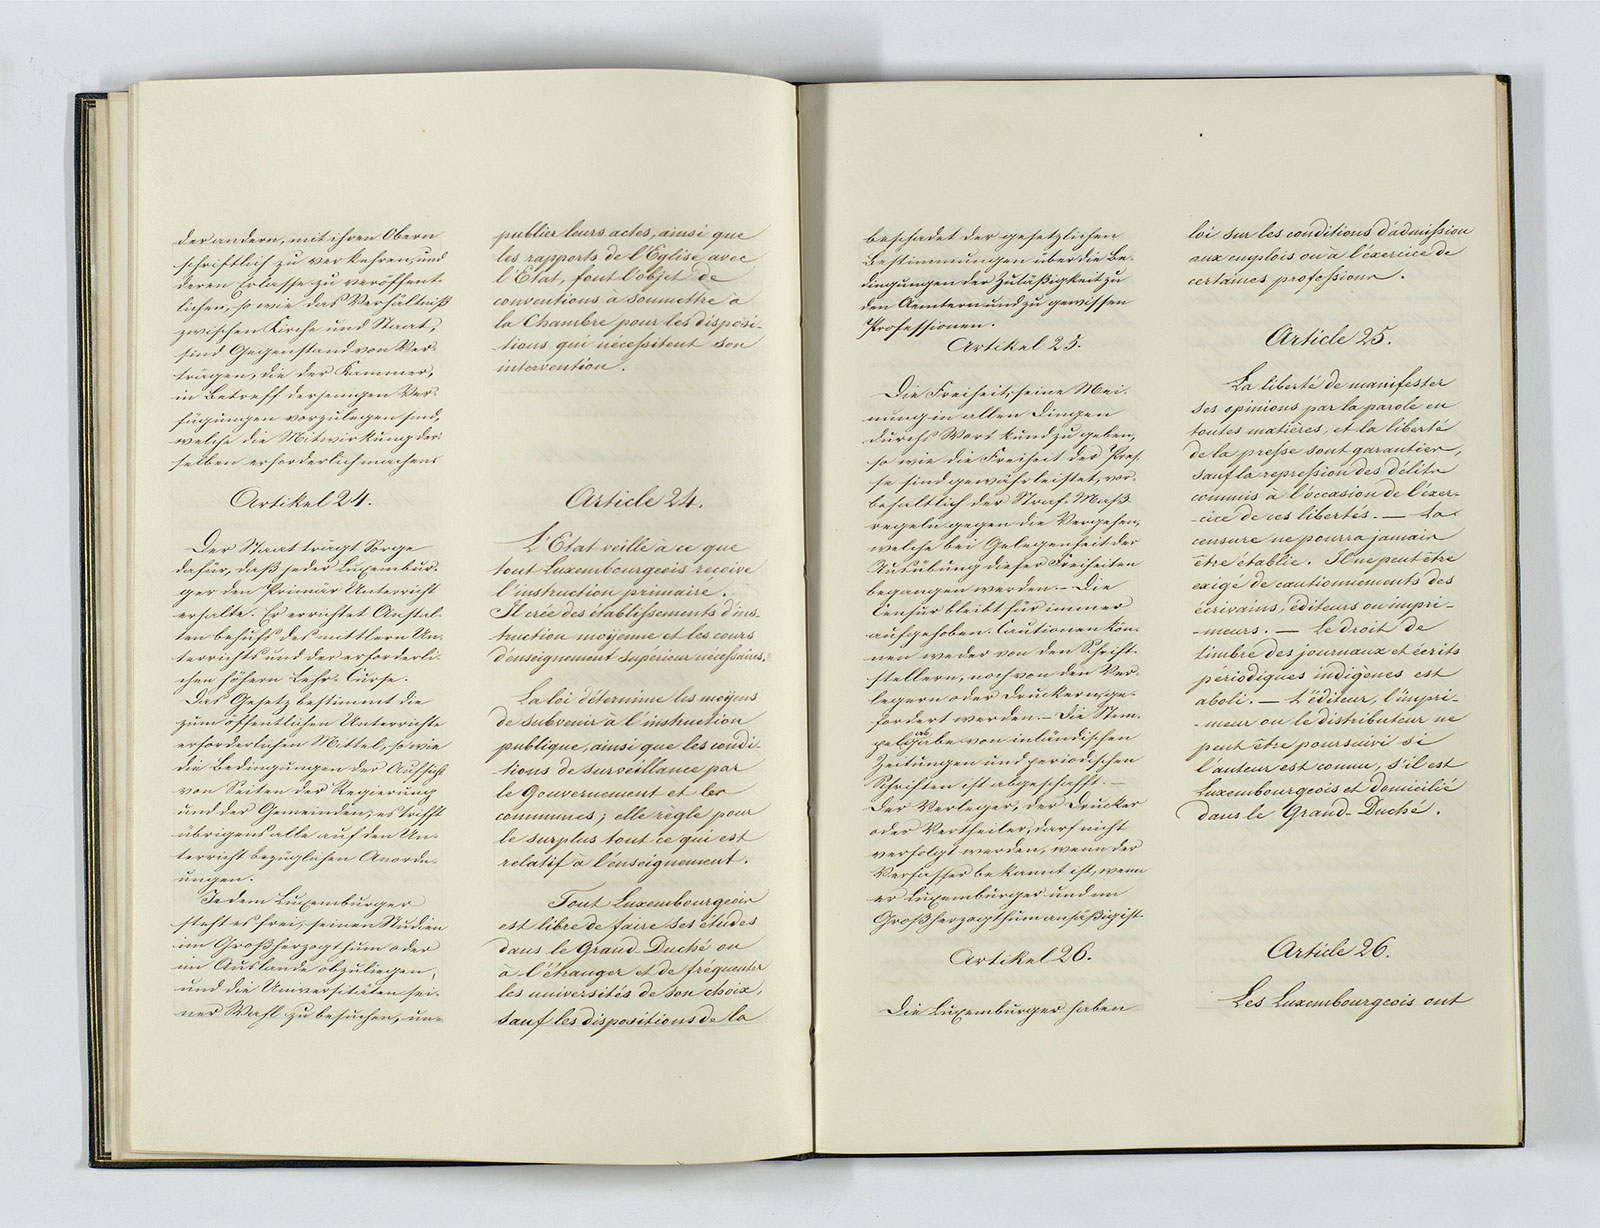 der andern, mit ihren Obern
schriftlich zu verkehren, und
deren Erlasse zu veröffent-
lichen, so wie das Verhältniß
zwischen Kirche und Staat,
sind Gegenstand von Ver-
trägen, die der Kammer,
in Betreff derjenigen Ver-
fügungen vorzulegen sind,
welche die Mitwirkung der-
selben erforderlich machen.
Artikel 24.
Der Staat trägt Sorge
dafür, daß jeder Luxembur-
ger den Primär Unterricht
erhalte. Er errichtet Anstal-
ten behufs des mittlern Un-
terrichts und der erforderli-
chen höhern Lehr-Curse.
Das Gesetz bestimmt die
zum öffentlichen Unterrichte
erforderlichen Mittel, so wie
die Bedingungen der Aufsicht
von Seiten der Regierung
und der Gemeinden; es trifft
übrigens alle auf den Un-
terricht bezüglichen Anord-
nungen.
Jedem Luxemburger
steht es frei, seinen Studien
im Großherzogthum oder
im Auslande obzuliegen,
und die Universitäten sei-
ner Wahl zu besuchen, un-
publier leurs actes, ainsi que
les rapports de l'Eglise avec
l'Etat, font l'objet de
conventions à soumettre à
la Chambre pour les disposi-
tions qui nécessitent son
intervention.
Article 24.
L'Etat veille à ce que
tout Luxembourgeois reçoive
l'instruction primaire.
Il crée des établissements d'ins-
truction moyenne et les cours
d'enseignement supérieur nécessaires.
La loi détermine les moyens
de subvenir à l'instruction
publique, ainsi que les condi-
tions de surveillance par
le Gouvernement et les
communes; elle règle pour
le surplus tout ce qui est
relatif à l'enseignement.
Tout Luxembourgeois
est libre de faire ses études
dans le Grand-Duché ou
à l'étranger et de fréquenter
les universités de son choix,
sauf les dispositions de la
beschadet der gesetzlichen
Bestimmungen über die Be-
dingungen der Zuläßigkeit zu
den Aemtern und zu gewissen
Professionen.
Artikel 25.
Die Freiheit, seine Mei-
nung in allen Dingen
durch's Wort kund zu geben,
so wie die Freiheit der Pres-
se sind gewährleistet, vor-
behaltlich der Straf-Maß-
regeln gegen die Vergehen,
welche bei Gelegenheit der
Ausübung dieser Freiheiten
begangen werden. – Die
Censur bleibt für immer
aufgehoben. Cautionen kön-
nen weder von den Schrift-
stellern, noch von den Ver-
legern oder Druckern ge-
fordert werden. – Die Stem-
pelabgabe von inländischen
Zeitungen und periodischen
Schriften ist abgeschafft. –
Der Verleger, der Drucker
oder Vertheiler, darf nicht
verfolgt werden, wenn der
Verfasser bekannt ist, wenn
er Luxemburger und im
Großherzogthum ansäßig ist.
Artikel 26.
Die Luxemburger haben
loi sur les conditions d'admission
aux emplois ou à l'exercice de
certaines professions.
Article 25.
La liberté de manifester
ses opinions par la parole en
toutes matières, et la liberté
de la presse sont garanties,
sauf la repression des délits
commis à l'occasion de l'exer-
-cice de ces libertés. — La
censure ne pourra jamais
être établie. Il ne peut être
exigé de cautionnements des
écrivains, éditeurs ou impri-
-meurs. — Le droit de
timbre des journaux et écrits
périodiques indigènes est
aboli. — L'éditeur, l'impri-
-meur ou le distributeur ne
peut être poursuivi si
l'auteur est connu, s'il est
Luxembourgeois et domicilié
dans le Grand-Duché.
Article 26.
Les Luxembourgeois ont